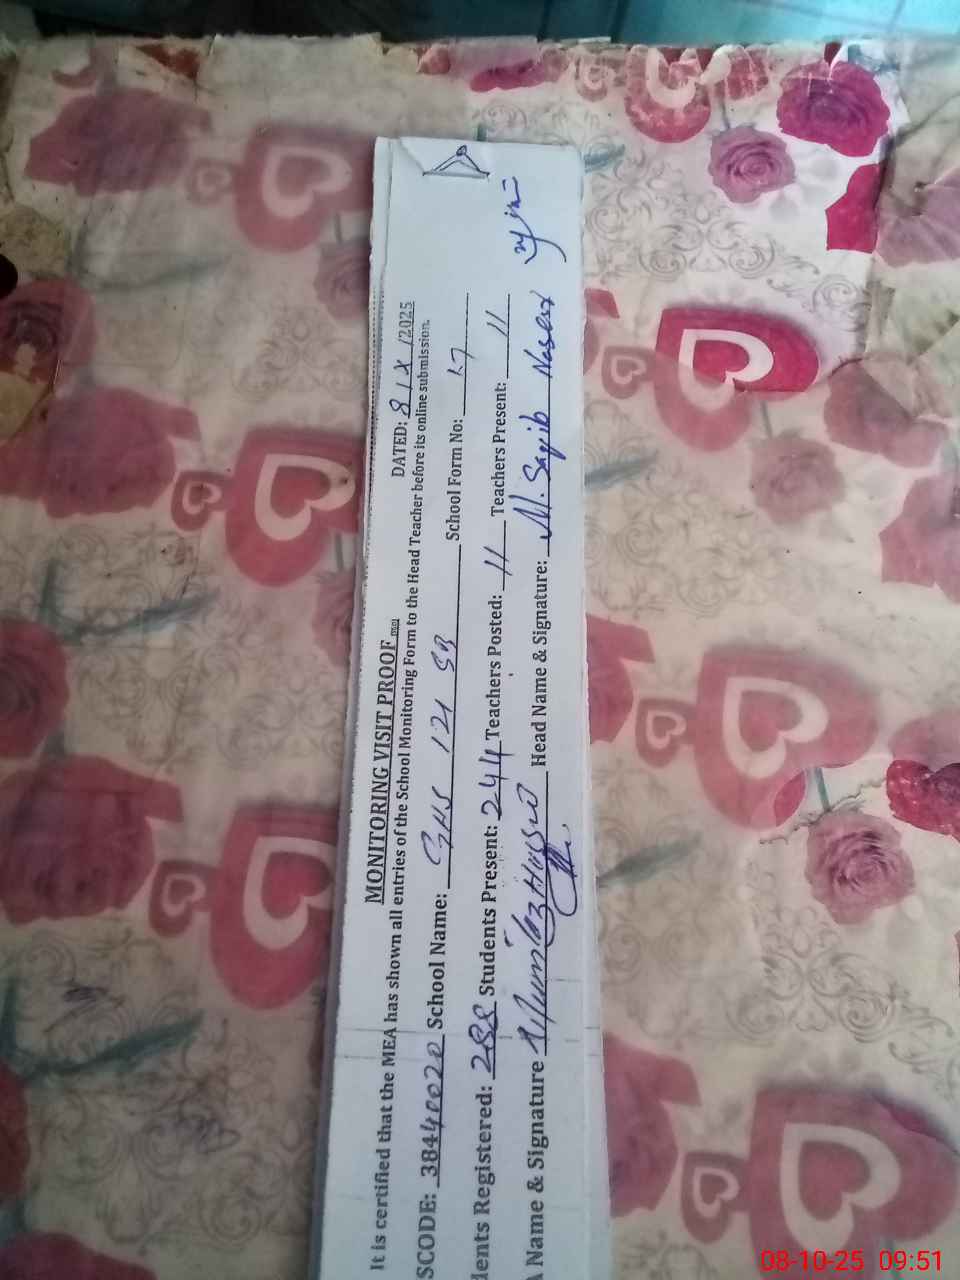 MONITORING VISIT PROOF
DATED: 8/X/2025
It is certified that the MEA has shown all entries of the School Monitoring Form to the Head Teacher before its online submission.
SCODE: 38440020 School Name: GHS 121 SB School Form No: 17
dents Registered: 288 Students Present: 244 Teachers Posted: 11 Teachers Present: 11
A Name & Signature Mumtaz Hussain Head Name & Signature: M. Saqib Naseer
08-10-25 09:51